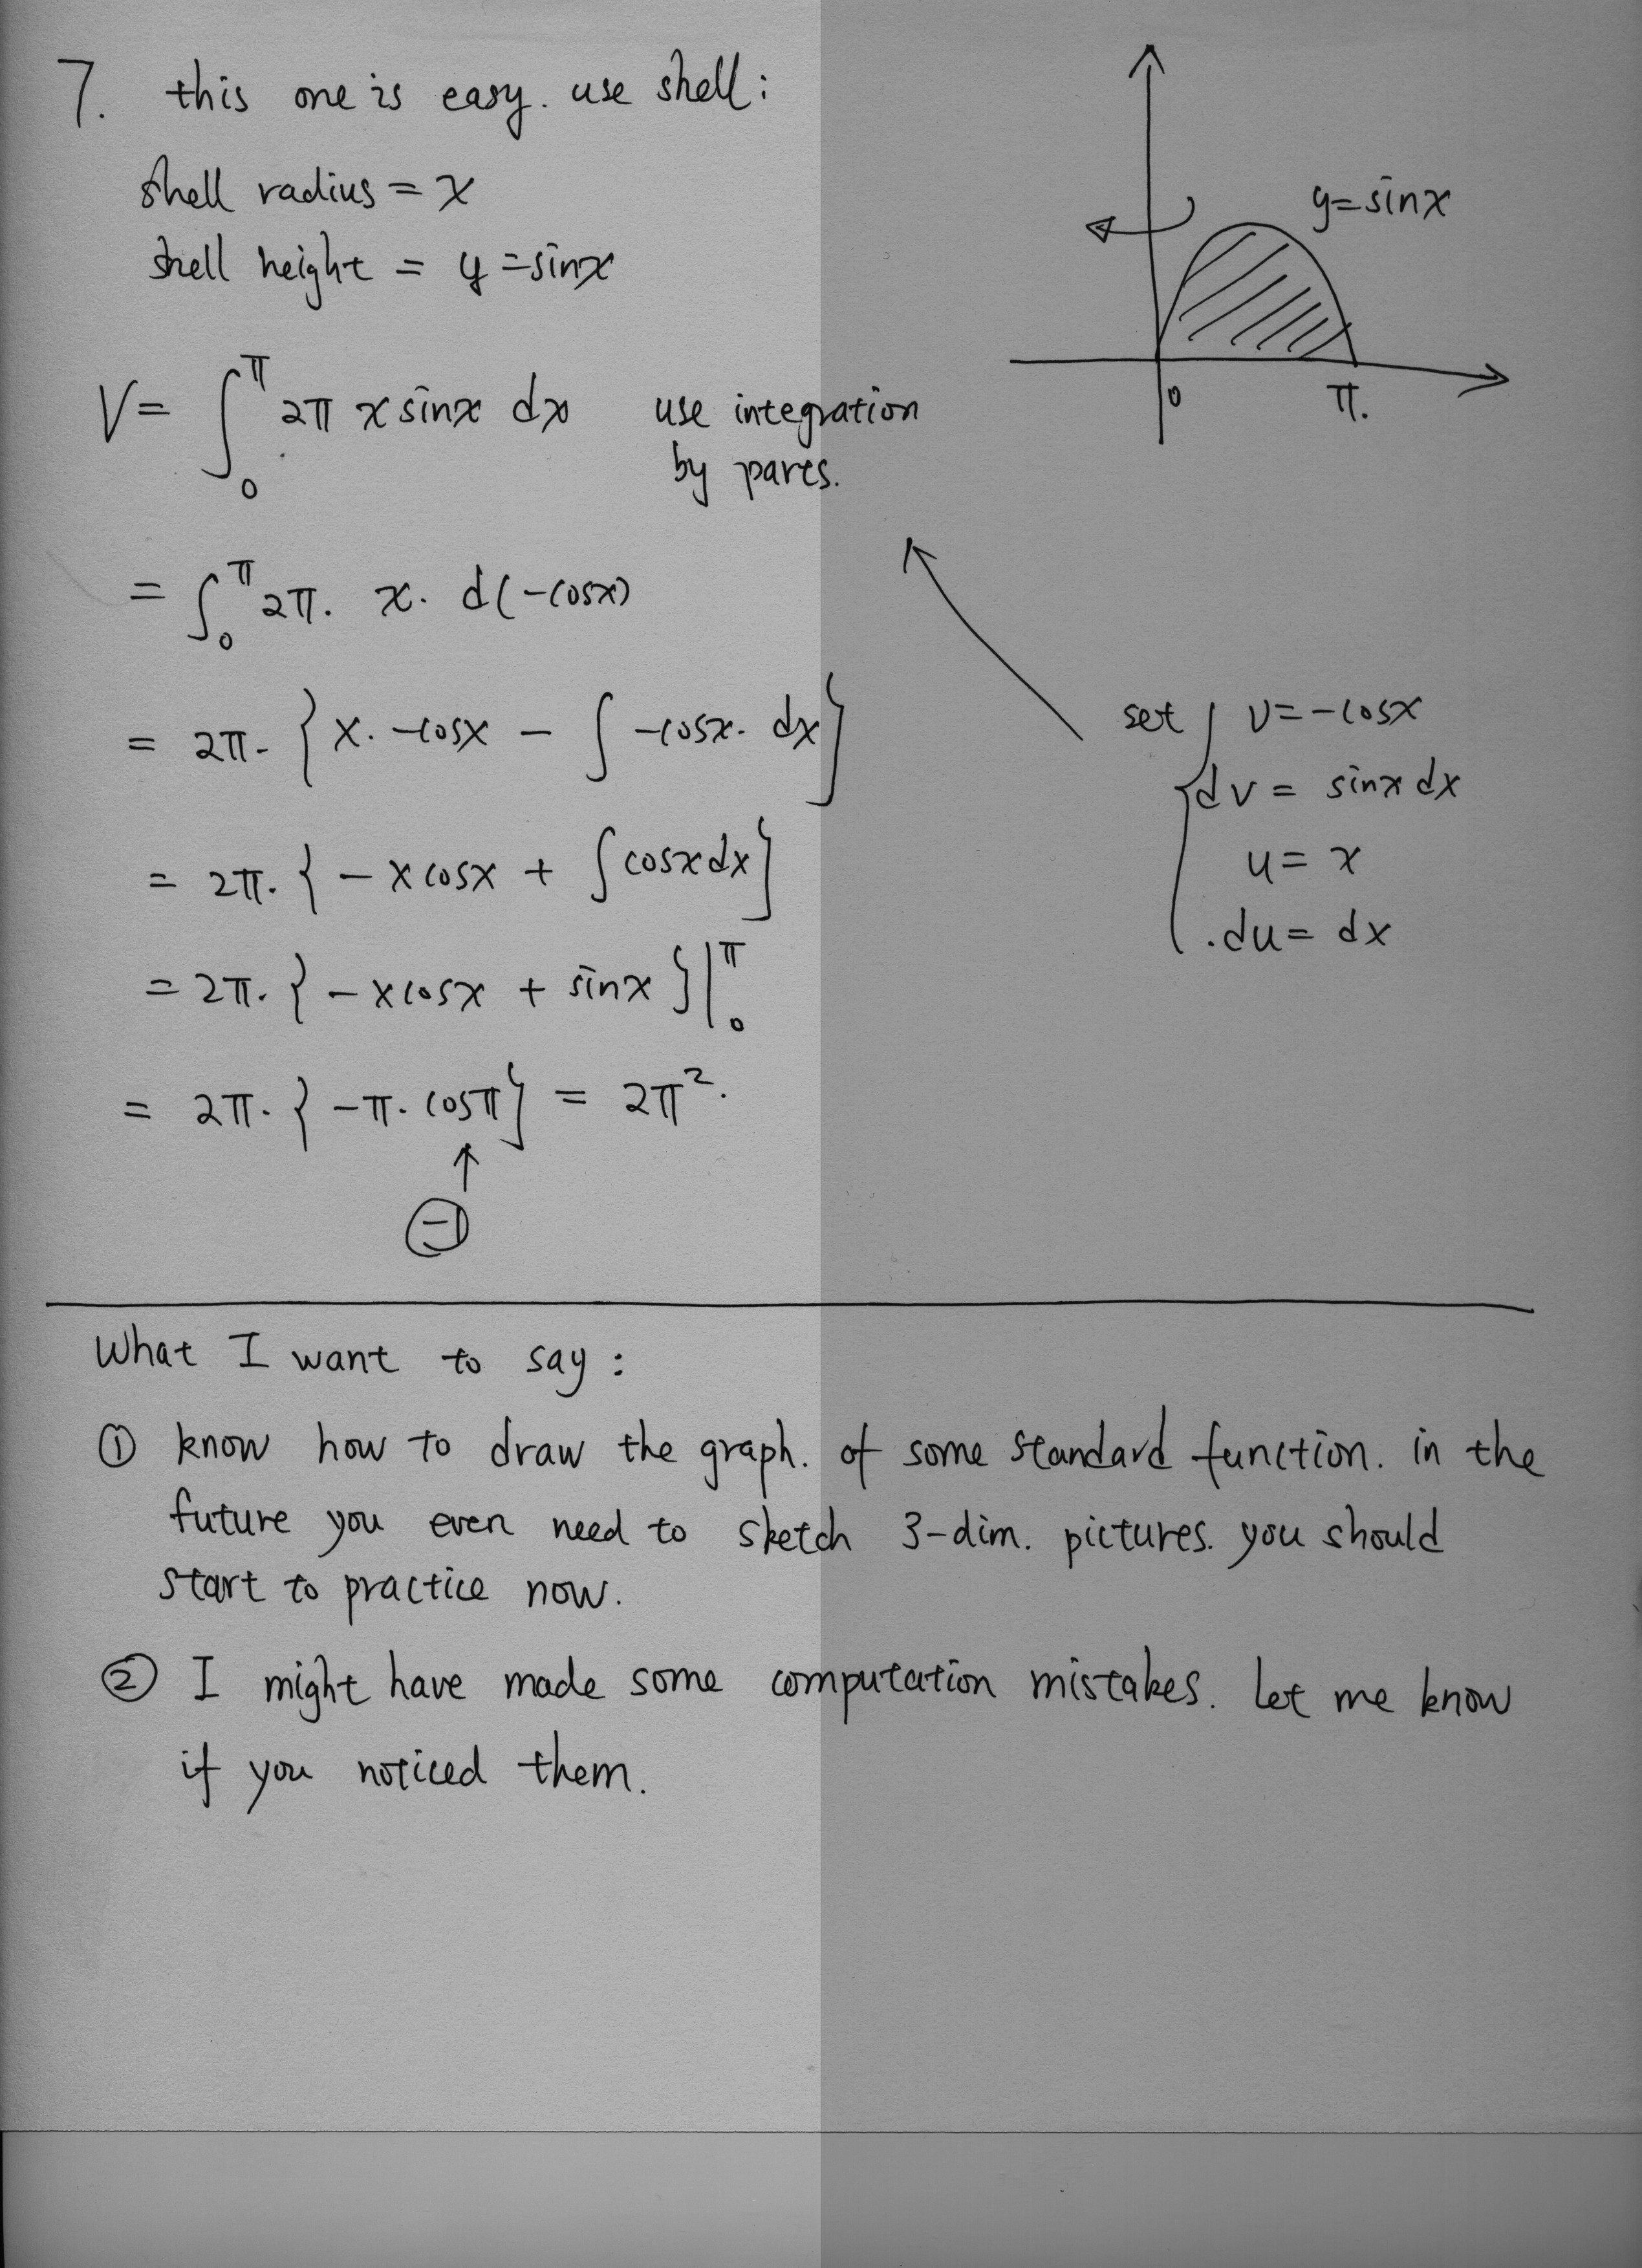 7. this one is easy. use shell:
shell radius = x
shell height = y = sinx
y=sinx
0 π.
V = ∫₀^π 2π x sinx dx use integration
by parts.
= ∫₀^π 2π. x. d(-cosx)
= 2π. { x. -cosx - ∫ -cosx. dx }
= 2π. { - x cosx + ∫ cosx dx }
= 2π. { - x cosx + sinx } |₀^π
= 2π. { -π. cosπ } = 2π².
↑
-1
set { v = -cosx
dv = sinx dx
u = x
.du = dx
What I want to say:
① know how to draw the graph. of some standard function. in the
future you even need to sketch 3-dim. pictures. you should
start to practice now.
② I might have made some computation mistakes. Let me know
if you noticed them.